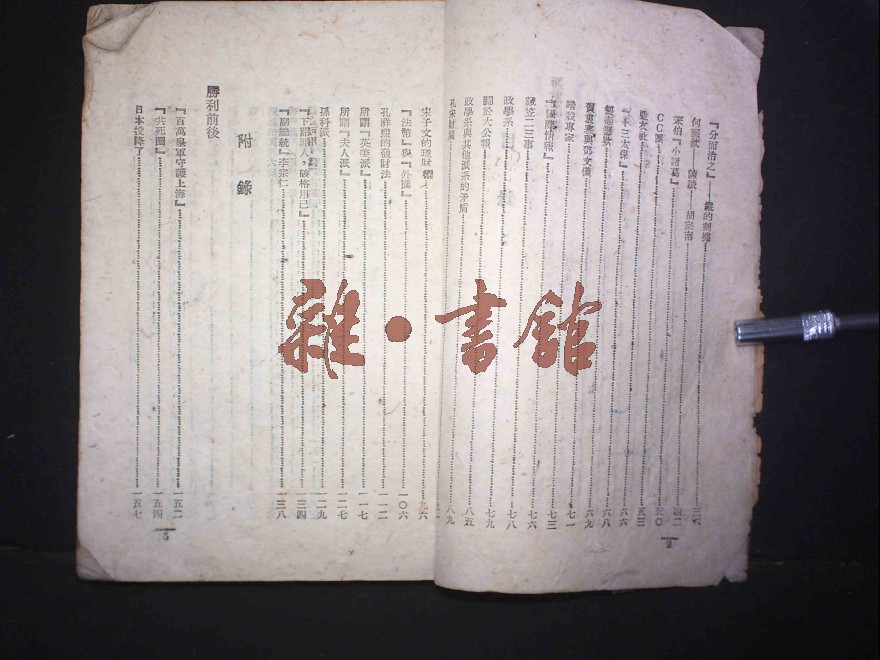 『分而治之』——蔣的制
何應欽——陳誠——胡宗南
『小諸葛』 四二
CC團 五〇
五三
『十三太保』 六六
六八
與鄧文儀 六九
暗殺專家 七一
『國際情報』 七三
二三事 七六
政學系 七八
關於大公報 七九
政學系與其他派系的矛盾 八五
孔宋財團 八九
宋子文的理財 九六
『法幣』與『外匯』 一〇六
孔祥熙的發財法 一一二
所謂『英美派』 一一七
所謂『夫人派』 一二七
孫科派 一二九
人,破格用己』 一三四
『副總統』李宗仁 一三八
2
附錄
勝利前後
『百萬皇軍守護上海』 一五二
『共死圈』 一五四
日本投降了 一五七
3
雜·書館